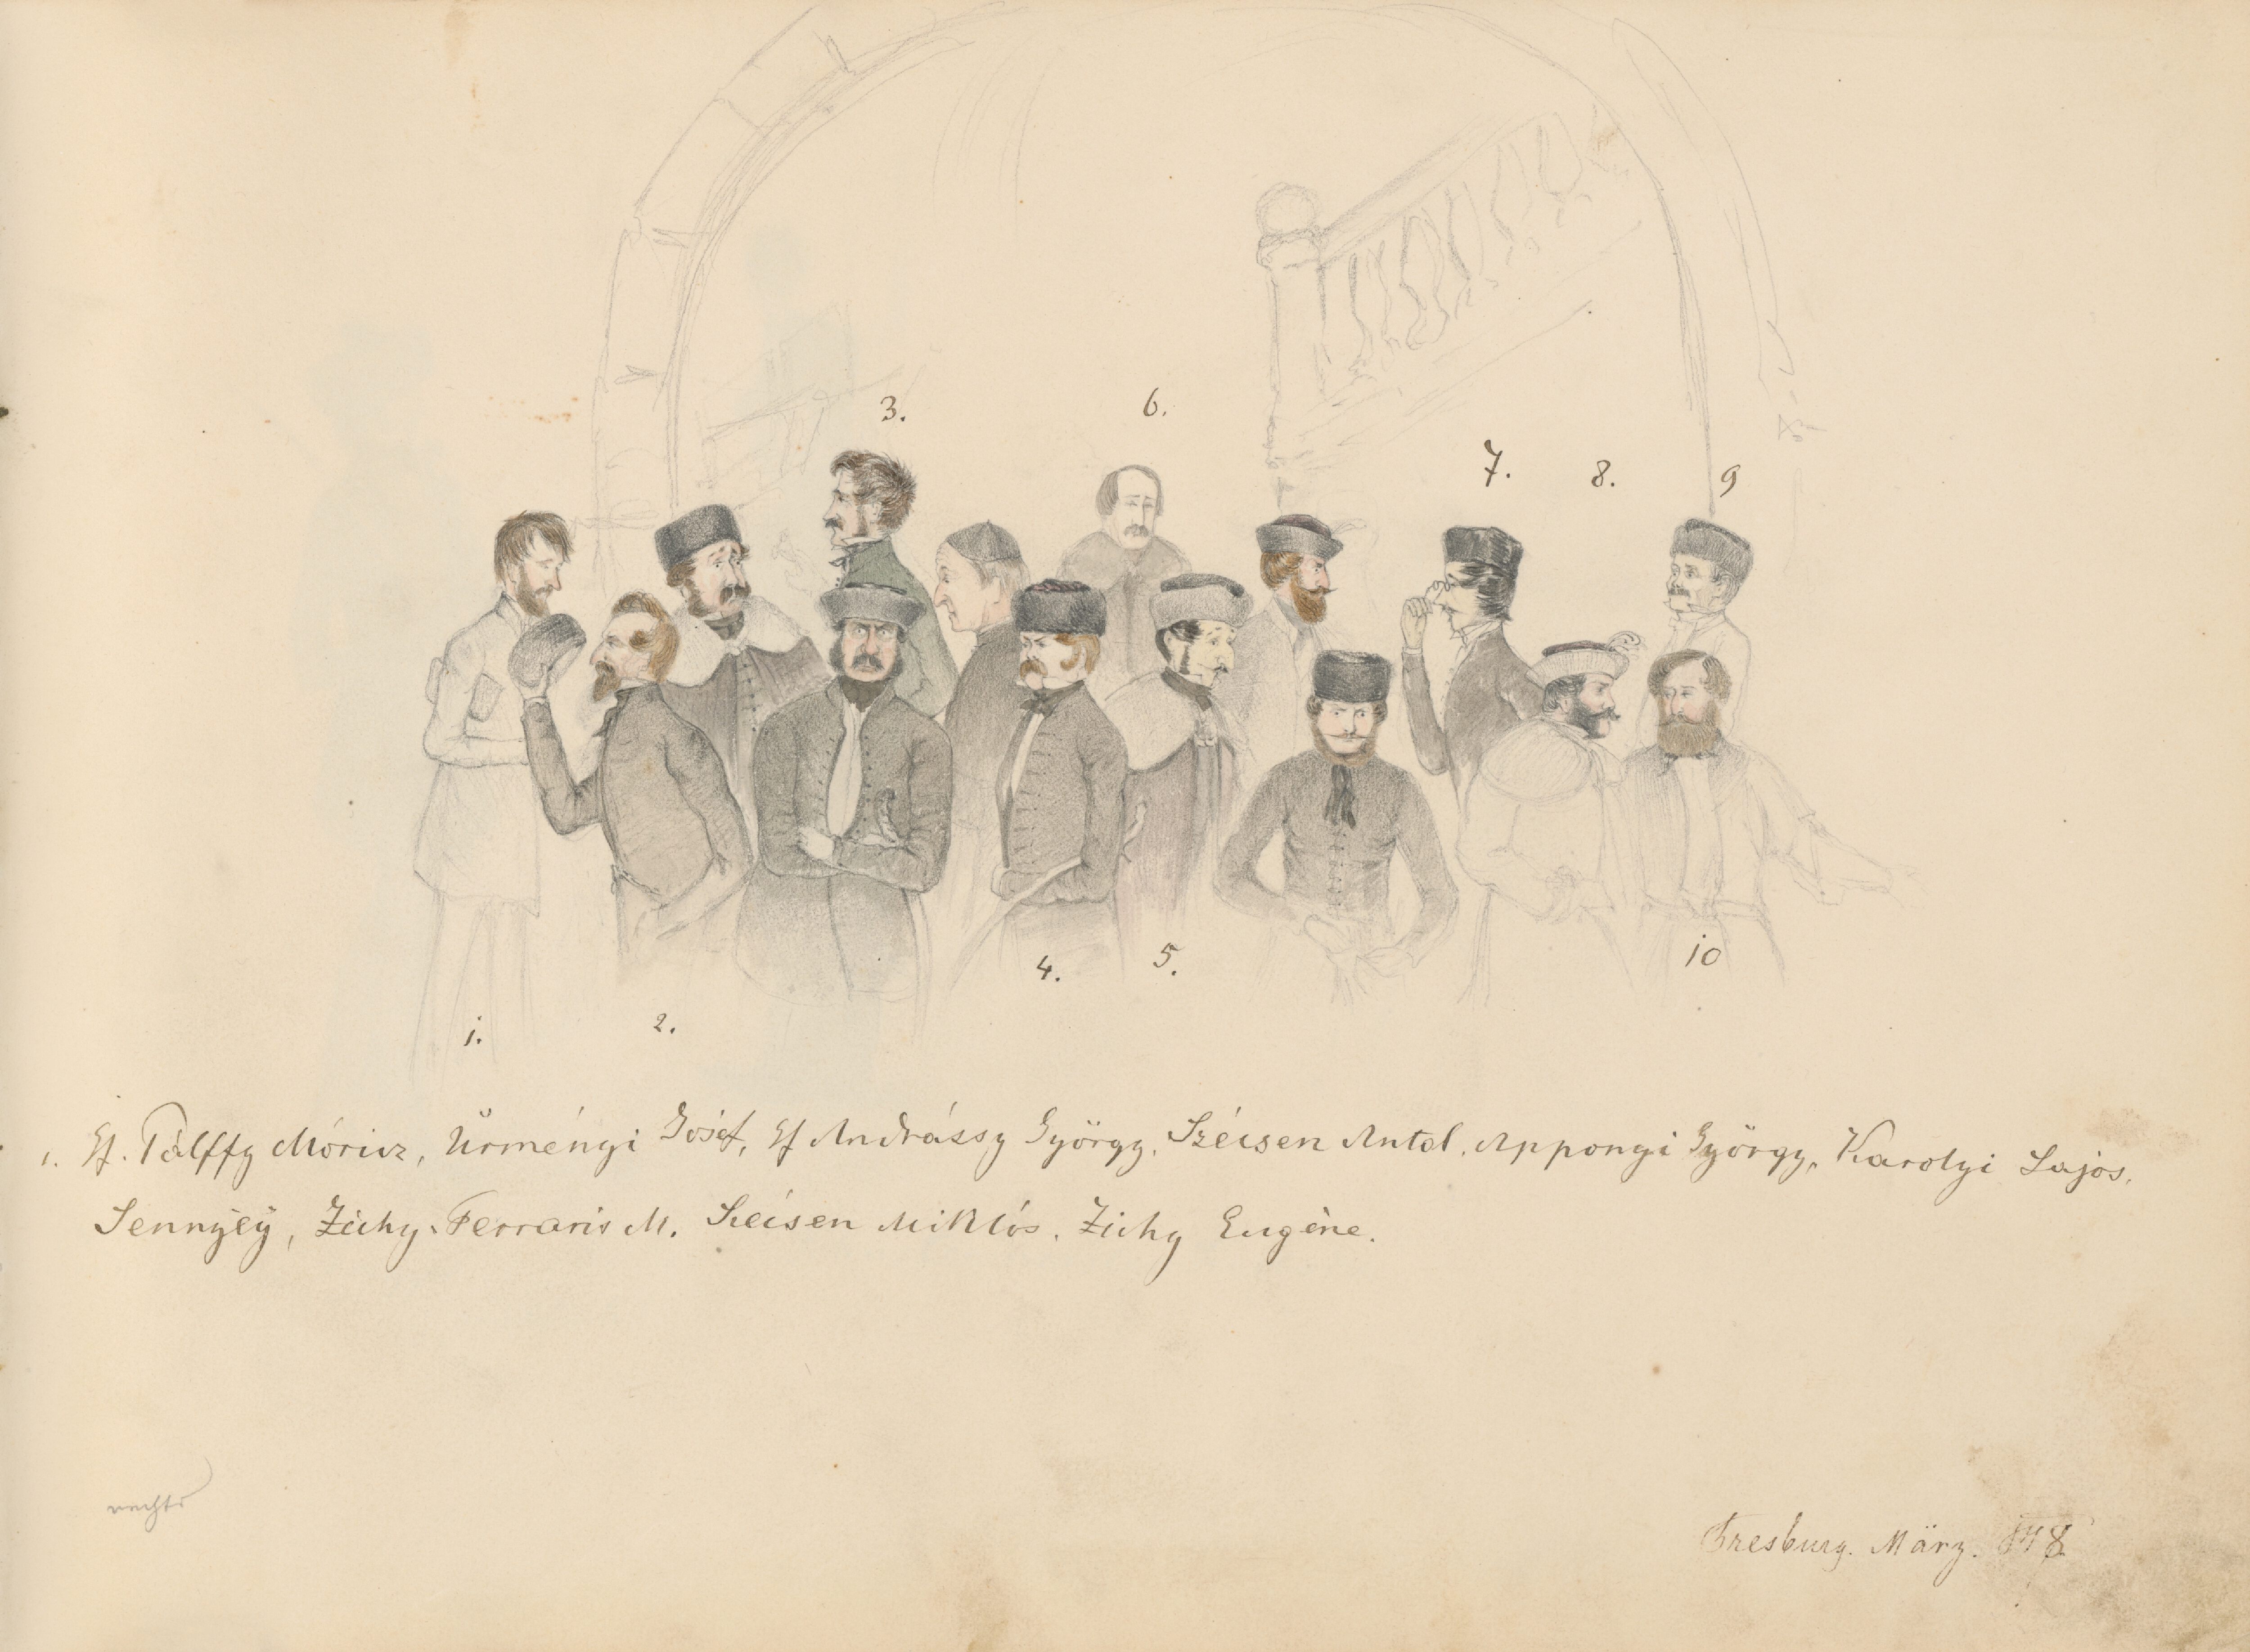 3.
6.
7.
8.
9
4.
5.
10
1.
2.
1. Gf. Pálffy Móricz, Ürményi Josef, Gf Andrássy György, Szécsen Antal, Apponyi György, Karolyi Lajos.
Sennÿeÿ, Zichy-Ferraris M. Szécsen Miklós. Zichy Eugène.
rechts
Presburg. März.